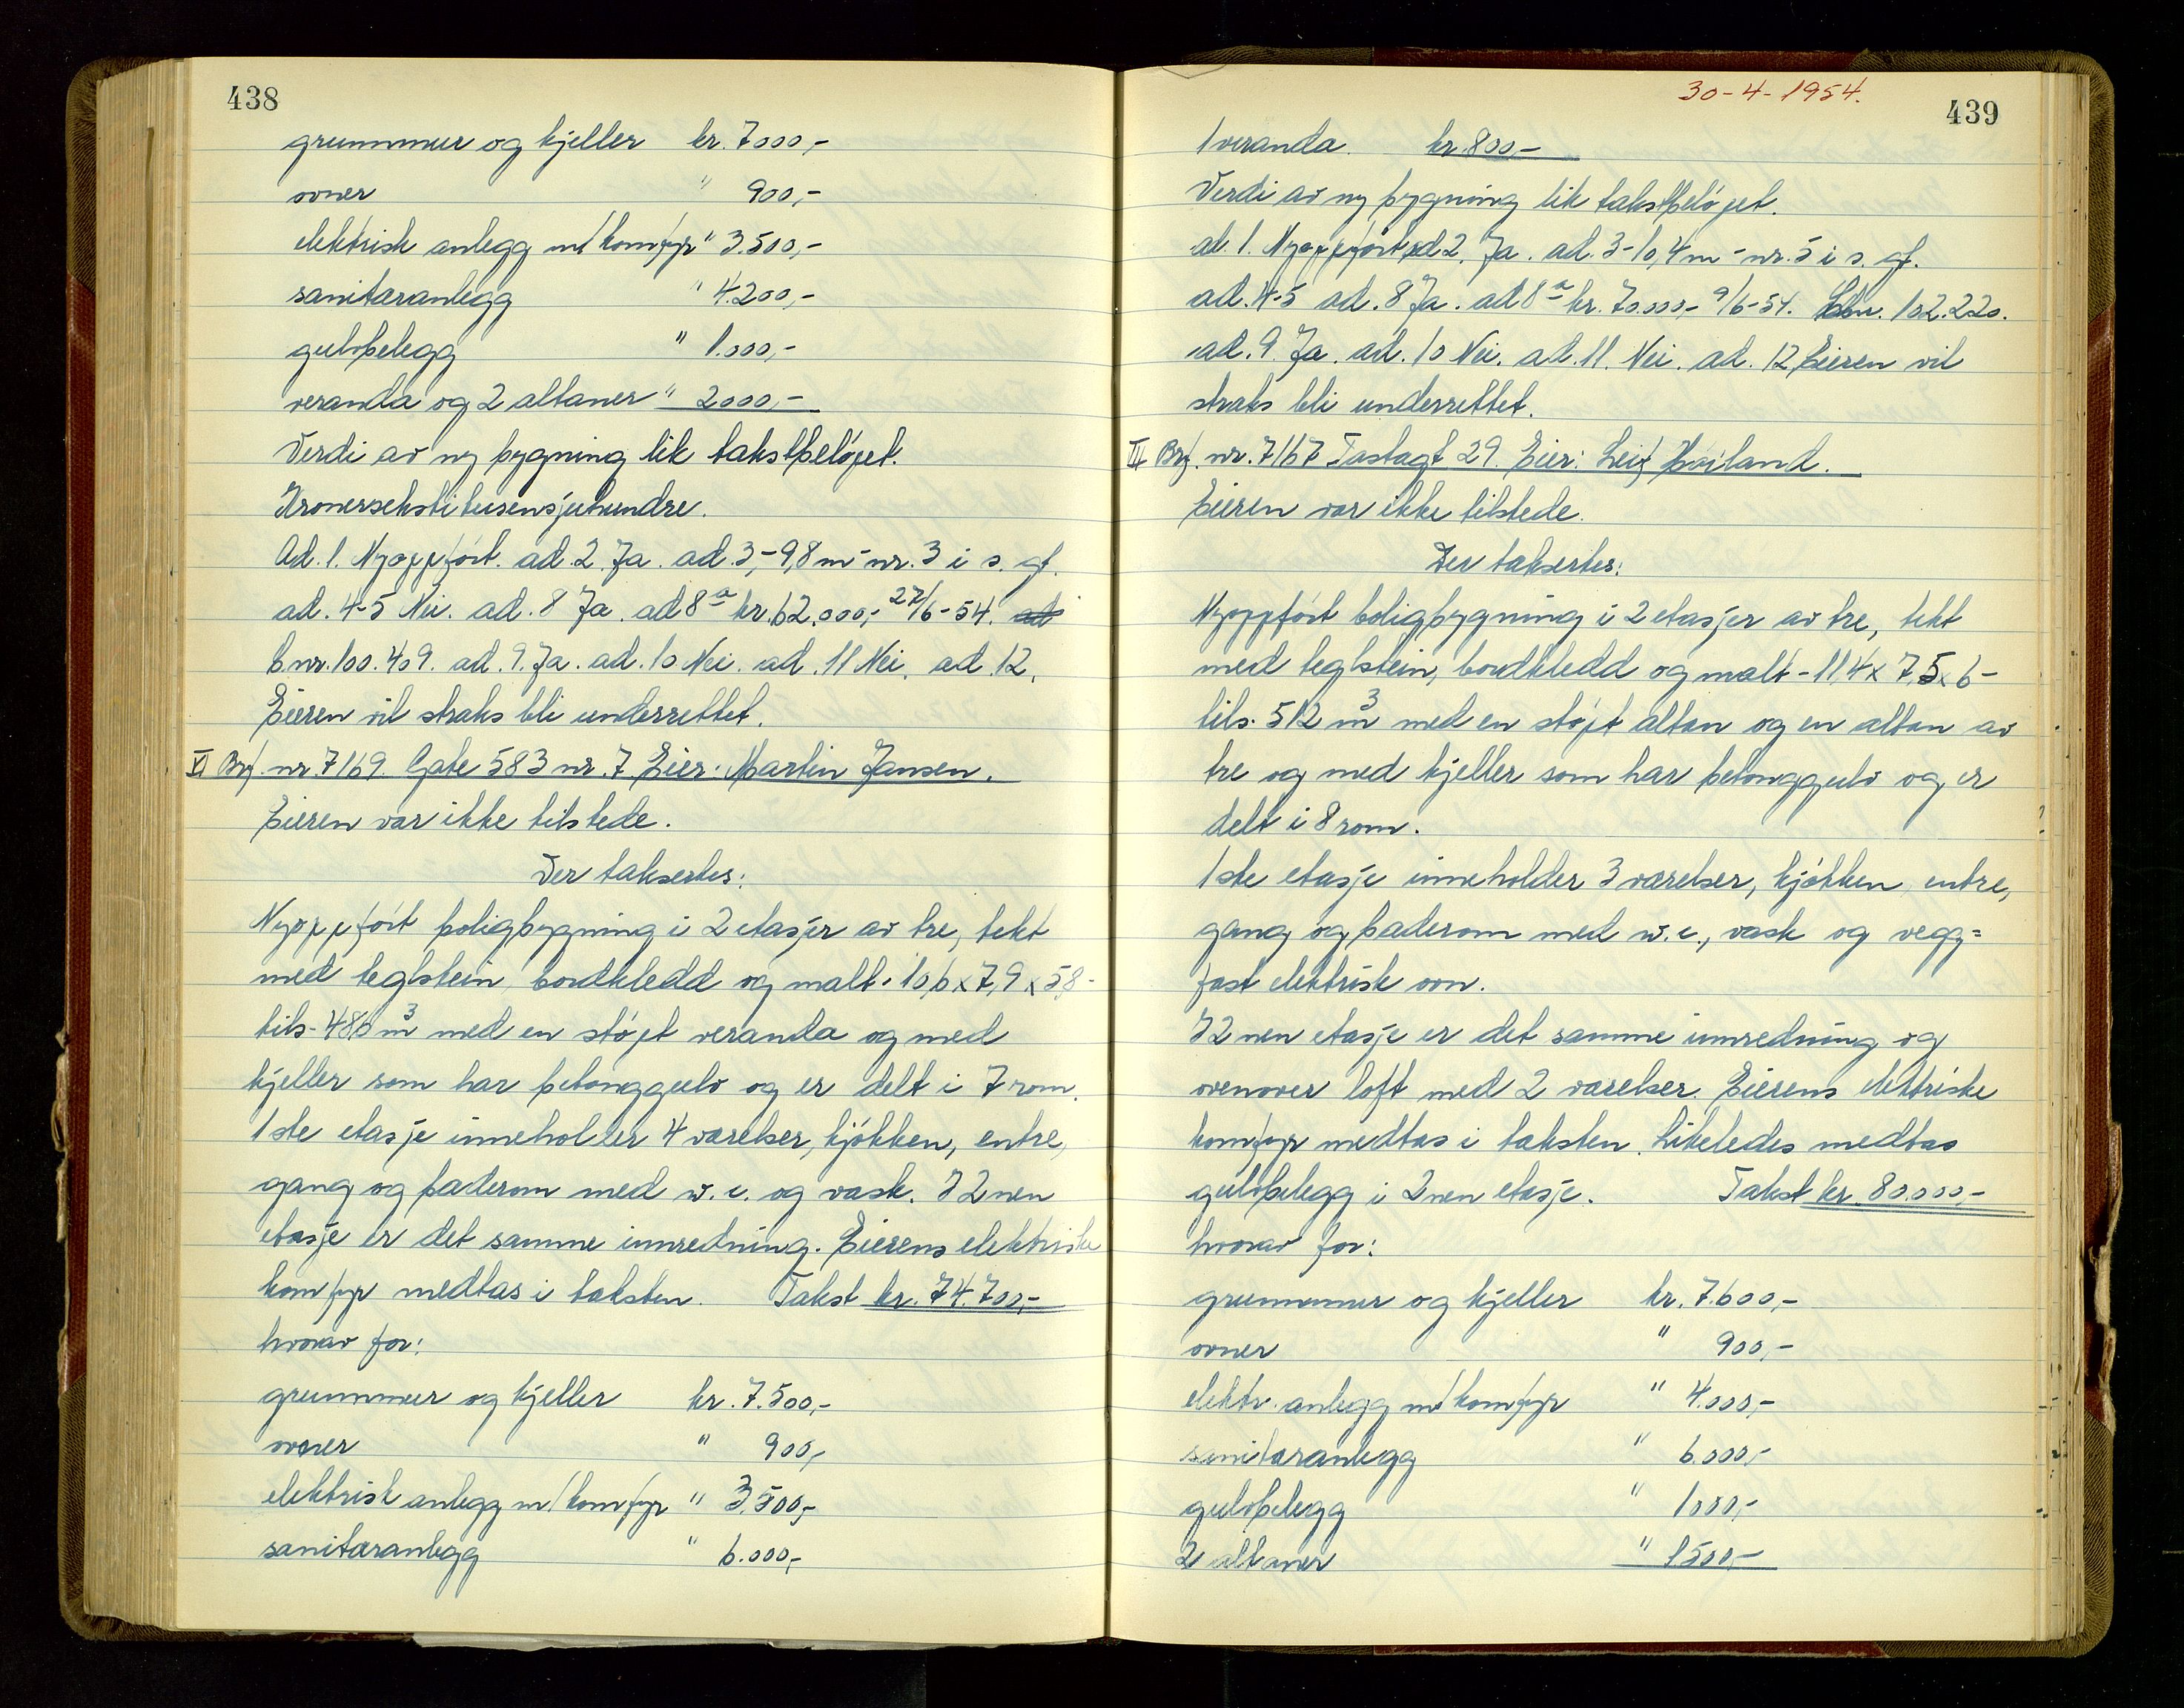 438
grunnmur og kjeller kr. 7000,-
ovner " 900,-
elektrisk anlegg m/komfyr " 3.500,-
sanitæranlegg " 4.200,-
gulvbelegg " 1.000,-
veranda og 2 altaner " 2000,-
Verdi av ny bygning lik takstbeløpet.
Kronersekstitusensjuhundre.
Ad. 1. Nyoppført. ad. 2. Ja. ad. 3,- 9,8 m - nr. 3 i s. gt.
ad. 4-5 Nei. ad. 8 Ja. ad 8a kr. 62.000,- 22/6-54. ad
bnr. 100.409. ad. 9. Ja. ad. 10 Nei. ad. 11 Nei. ad. 12.
Eieren vil straks bli underrettet.
VI Brf. nr. 7169. Gate 583 nr. 7. Eier: Martin Jansen.
Eieren var ikke tilstede.
Der takseres:
Nyoppført boligbygning i 2 etasjer av tre, tekt
med teglstein, bordkledd og malt. 10,6 x 7,9 x 5,8 -
tils - 486 m3 med en støpt veranda og med
kjeller som har betonggulv og er delt i 7 rom.
1ste etasje inneholder 4 værelser, kjøkken, entre,
gang og baderom med w.c. og vask. I 2nen
etasje er det samme innredning. Eierens elektriske
komfyr medtas i taksten. Takst kr. 74.700,-
hvorav for:
grunnmur og kjeller kr. 7.500,-
ovner " 900,-
elektrisk anlegg m/komfyr " 3.500,-
sanitæranlegg " 6.000,-
30-4-1954.
439
1 veranda. kr. 800,-
Verdi av ny bygning lik takstbeløpet.
ad. 1. Nyoppført ad 2. Ja. ad. 3- 10,4 m - nr. 5 i s. gt.
ad. 4-5 ad. 8 Ja. ad 8a kr. 70.000,- 9/6-54. bnr. 102.220.
ad. 9. Ja. ad. 10 Nei. ad. 11. Nei. ad. 12 Eieren vil
straks bli underrettet.
Brf. nr. 7167 Tastagt 29. Eier: Leif Høiland.
Eieren var ikke tilstede.
Der taksertes:
Nyoppført boligbygning i 2 etasjer av tre, tekt
med teglstein, bordkledd og malt - 11,4 x 7,5 x 6 -
tils. 512 m3 med en støpt altan og en altan av
tre og med kjeller som har betonggulv og er
delt i 8 rom.
1ste etasje inneholder 3 værelser, kjøkken, entre,
gang og baderom med w.c., vask og vegg=
fast elektrisk ovn.
I 2nen etasje er det samme innredning og
ovenover loft med 2 værelser. Eierens elektriske
komfyr medtas i taksten. Likeledes medtas
gulvbelegg i 2nen etasje. Takst kr. 80.000,-
hvorav for:
grunnmur og kjeller kr. 7.600,-
ovner " 900,-
elektr. anlegg m/komfyr " 4.000,-
sanitæranlegg " 6.000,-
gulvbelegg " 1000,-
2 altaner " 1500,-